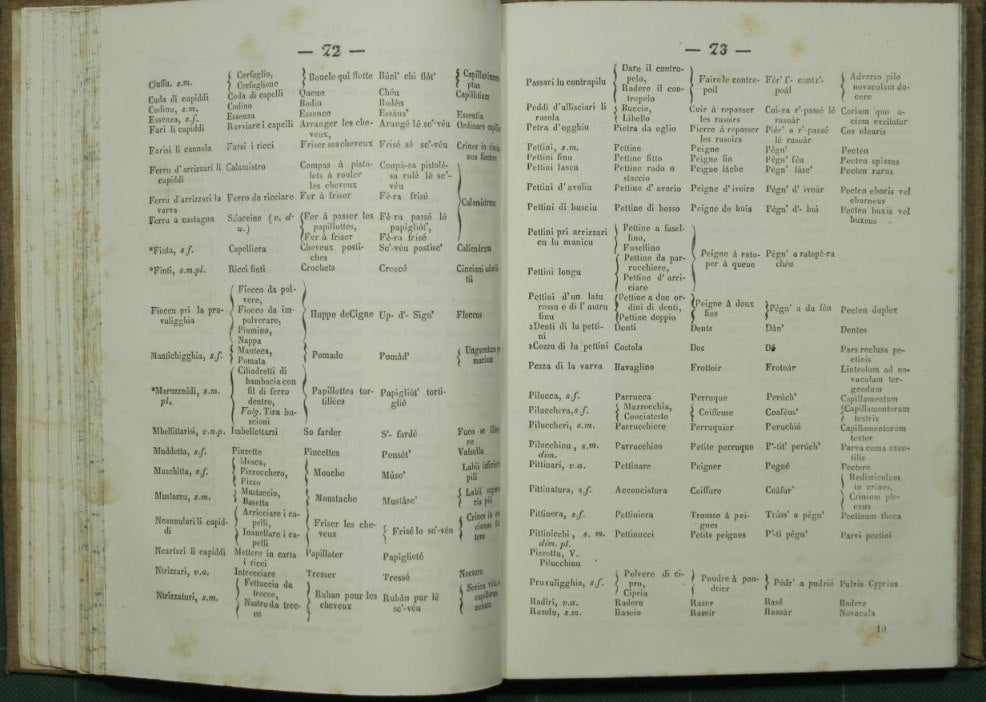 — 72 —
Ciuffu, s.m. Cerfuglio, Cerfuglione Boucle qui flotte Bùcl' chi flôt'
Cuda di capiddi Coda di capelli Queue Chéu Capillitium
Cudinu, s.m. Codino Bodin Bodén
Essenza, s.f. Essenza Essence Essâns' Essentia
Fari li capiddi Ravviare i capelli Arranger les cheveux, Arangé lé sc'-véu Ordinare
Farisi li cannola Farsi i ricci Friser ses cheveux Frisé sè sc'-véu Crines in
Ferru d'arrizzari li capiddi Calamistro Compas à pistolets à rouler les cheveux Conpà-sa pistolé-sa rulè lè sc'-véu
Ferru d'arrizzari la varva Ferro da ricciare Fer à friser Fè-ra frisé Calamistrum
Ferru a castagna Stiaccine (v. d'u.) Fer à passer les papillottes, Fer à friser Fê-ra passé lé papigliôt', Fê-ra frisé
*Finta, s.f. Capelliera Cheveux postiches Sc'-véu postisc' Caliendrum
*Finti, s.m.pl. Ricci finti Crochets Croscé Cincinni
Fioccu pri la pruvuligghia Fiocco da polvere, Fiocco da impolverare, Piumino, Nappa Huppe de Cigne Up- d'- Sign' Floccus
Mantichigghia, s.f. Manteca, Pomata Pomade Pomàd'
*Maruzzeddi, s.m. pl. Cilindretti di bambacia con fil di ferro dentro, Volg. Tira buscioni Papillottes tortillées Papigliôt' tortiglié
Mbellittarisi, v.n.p. Imbellettarsi Se farder S'- fardé Fuco se
Muddetta, s.f. Pinzette Pincettes Pensêt' Volsella
Muschitta, s.f. Mosca, Pizzocchero, Pizzo Mouche Mûsc' Labii pili
Mustazzu, s.m. Mustaccio, Basetta Moustache Mustàsc' Labii pili
Ncannulari li capiddi Arricciare i capelli, Inanellare i capelli Friser les cheveux Frisé le sc'-véu Crines in
Ncartari li capiddi Mettere in carta i ricci Papilloter Papiglioté
Ntrizzari, v.a. Intrecciare Tresser Tressé Nectere
Ntrizzaturi, s.m. Fettuccia da trecce, Nastro da trecce Ruban pour les cheveux Rubán pur lé sc'-véu Serica capillorum nexum
— 73 —
Passari lu contrapilu Dare il contropelo, Radere il contropelo Faire le contrepoil Fér' l'- contr'-poâl Adverso pilo novaculam ducere
Peddi d'allisciari li rasola Buccio, Libello Cuir à repasser les rasoirs Cui-ra r'-passé lé rasoàr Corium quo aciem excitatur
Petra d'ogghiu Pietra da oglio Pierre à repasser les rasoirs Piér' a r'-passé lé rasoàr Cos olearis
Pettini, s.m. Pettine Peigne Pégn' Pecten
Pettini finu Pettine fitto Peigne fin Pégn' fén Pecten spissus
Pettini lascu Pettine rado o staccio Peigne lâche Pégn' lâsc' Pecten rarus
Pettini d'avoliu Pettine d'avorio Peigne d'ivoire Pégn' d' ivoàr Pecten eboris vel eburneus
Pettini di busciu Pettine di bosso Peigne de buis Pégn' d'- bui Pecten buxis vel buxeus
Pettini pri arrizzari cu lu manicu Pettine a fusellino, Fusellino
Pettini longu Pettine da parrucchiere, Pettine d' arriciare Peigne à ratoper à queue Pégn' a ratopé-ra chéu
Pettini d'un latu rossu e di l' autru finu Pettine a due ordini di denti, Pettine doppio Peigne à deux fins Pégn' a du fén Pecten duplex
»Denti di lu pettini Denti Dents Dân' Dentes
»Cozzu di lu pettini Costola Dos Pars reclusa pectinis
Pezza di la varva Bavaglino Frottoir Frotoàr Linteolum ad novaculam tergendam
Pilucca, s.f. Parrucca Perruque Perúch' Capillamentum
Pilucchera, s.f. Mazzocchia, Conciateste Coiffeuse Coaféus' Capillamentorum textrix
Piluccheri, s.m. Parrucchiere Perruquier Peruchié Capillamentorum textor
Pilucchinu, s.m. dim. Parrucchino Petite perruque P'-tit' perúch' Parva coma exentilis
Pittinari, v.a. Pettinare Peigner Pegné Pectere
Pittinatura, s.f. Acconciatura Coiffure Coàfur' Redimiculum in crines, Crinium plexus
Pittinera, s.f. Pettiniera Trousse à peignes Trûss' a pégn' Pectinum theca
Pittinicchi, s. m. dim. pl. Pettinucci Petits peignes P'-ti pégn' Parvi pectini
Pizzottu, V. Pilucchinu
Pruvaligghia, s.f. Polvere di cipro, Cipria Poudre à poudrier Púdr' a pudrié Pulvis Cyprius
Radiri, v.a. Radere Raser Rasé Radere
Rasolu, s.m. Rasoio Rasoir Rasoàr Novacula
10